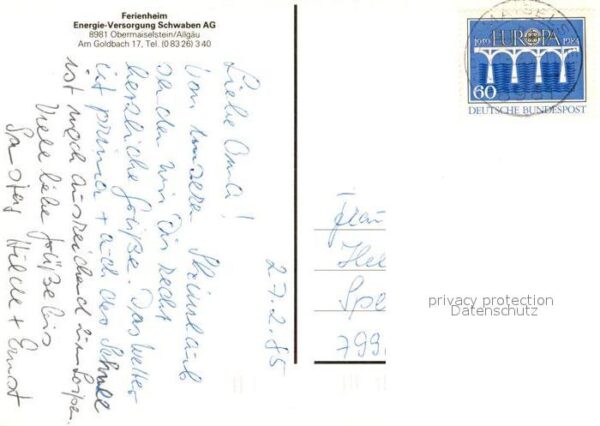 Ferienheim
Energie-Versorgung Schwaben AG
8981 Obermaiselstein/Allgäu
Am Goldbach 17, Tel. (0 83 26) 3 40
1949 EUROPA 1984
60
DEUTSCHE BUNDESPOST
27.2.85
Liebe Oma!
Von unserem Skiurlaub
senden wir Dir recht
herzliche Grüße. Das Wetter
ist prima + auch der Schnee
ist noch ausreichend zum
Viele liebe Grüße bis
Samstag Hilde + Ernst
Frau
Spe
799
privacy protection
Datenschutz